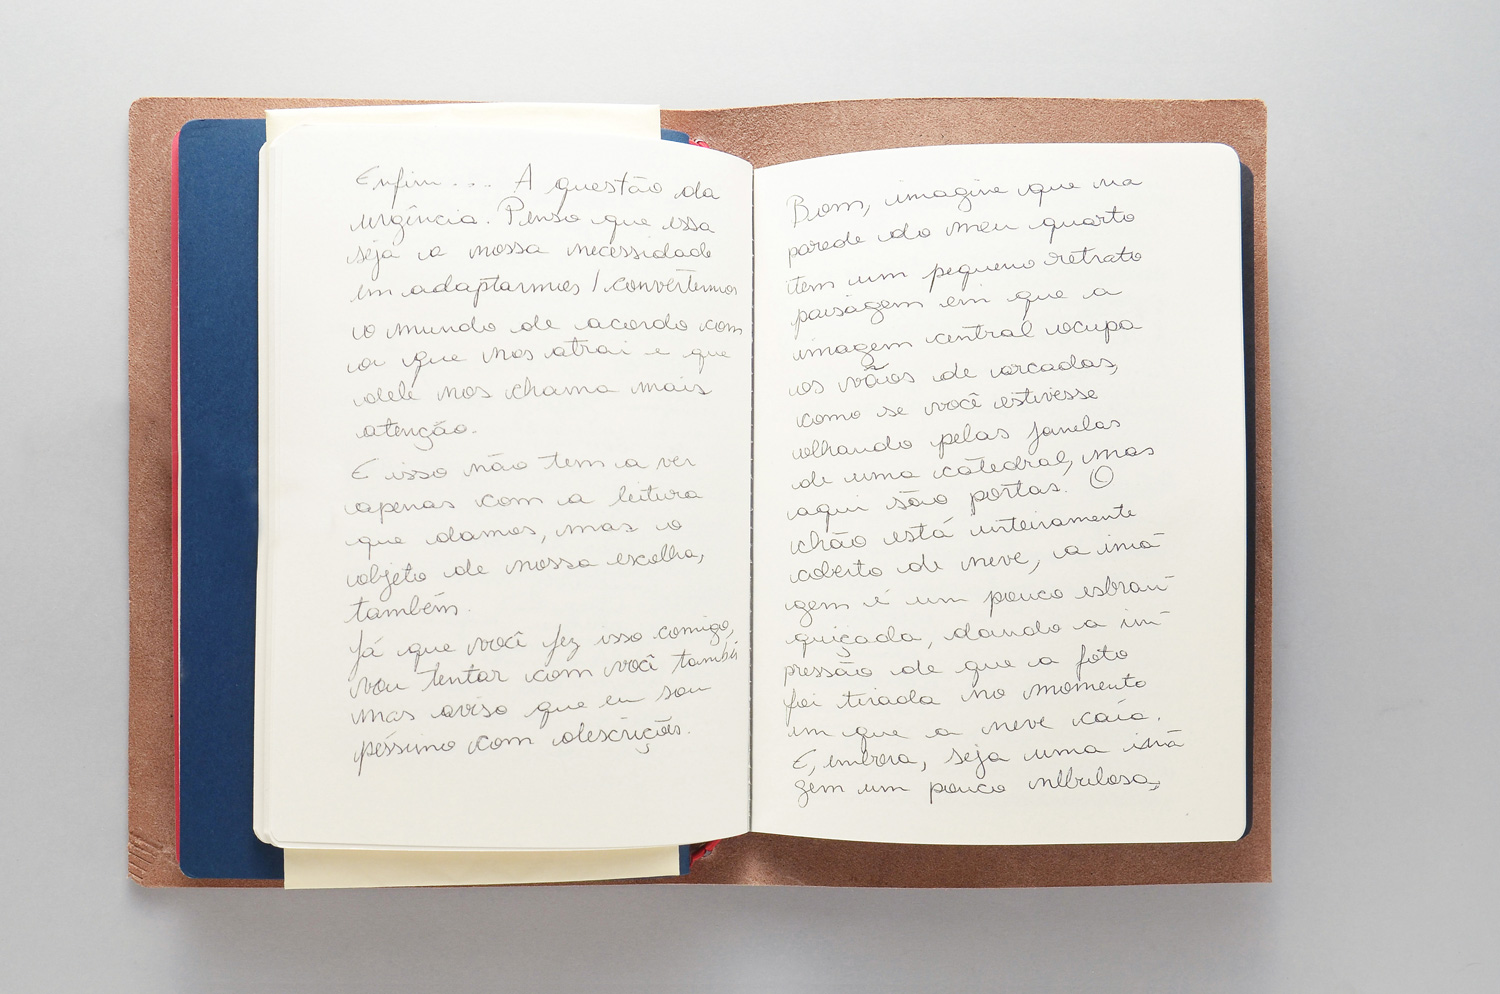 Enfim... A questão da
urgência. Penso que essa
seja a nossa necessidade
em adaptarmos / convertermos
o mundo de acordo com
o que nos atrai e que
dele nos chama mais
atenção.
E isso não tem a ver
apenas com a leitura
que damos, mas o
objeto de nossa escolha,
também.
Já que você fez isso comigo,
vou tentar com você também
mas aviso que eu sou
péssimo com descrições.
Bom, imagine que na
parede do meu quarto
tem um pequeno retrato
paisagem em que a
imagem central ocupa
os vãos de arcadas,
como se você estivesse
olhando pelas janelas
de uma catedral, mas
aqui são portas. O
chão está inteiramente
coberto de neve, a ima
gem é um pouco esbran
quiçada, dando a im
pressão de que a foto
foi tirada no momento
em que a neve caía.
E, embora, seja uma ima
gem um pouco nebulosa,